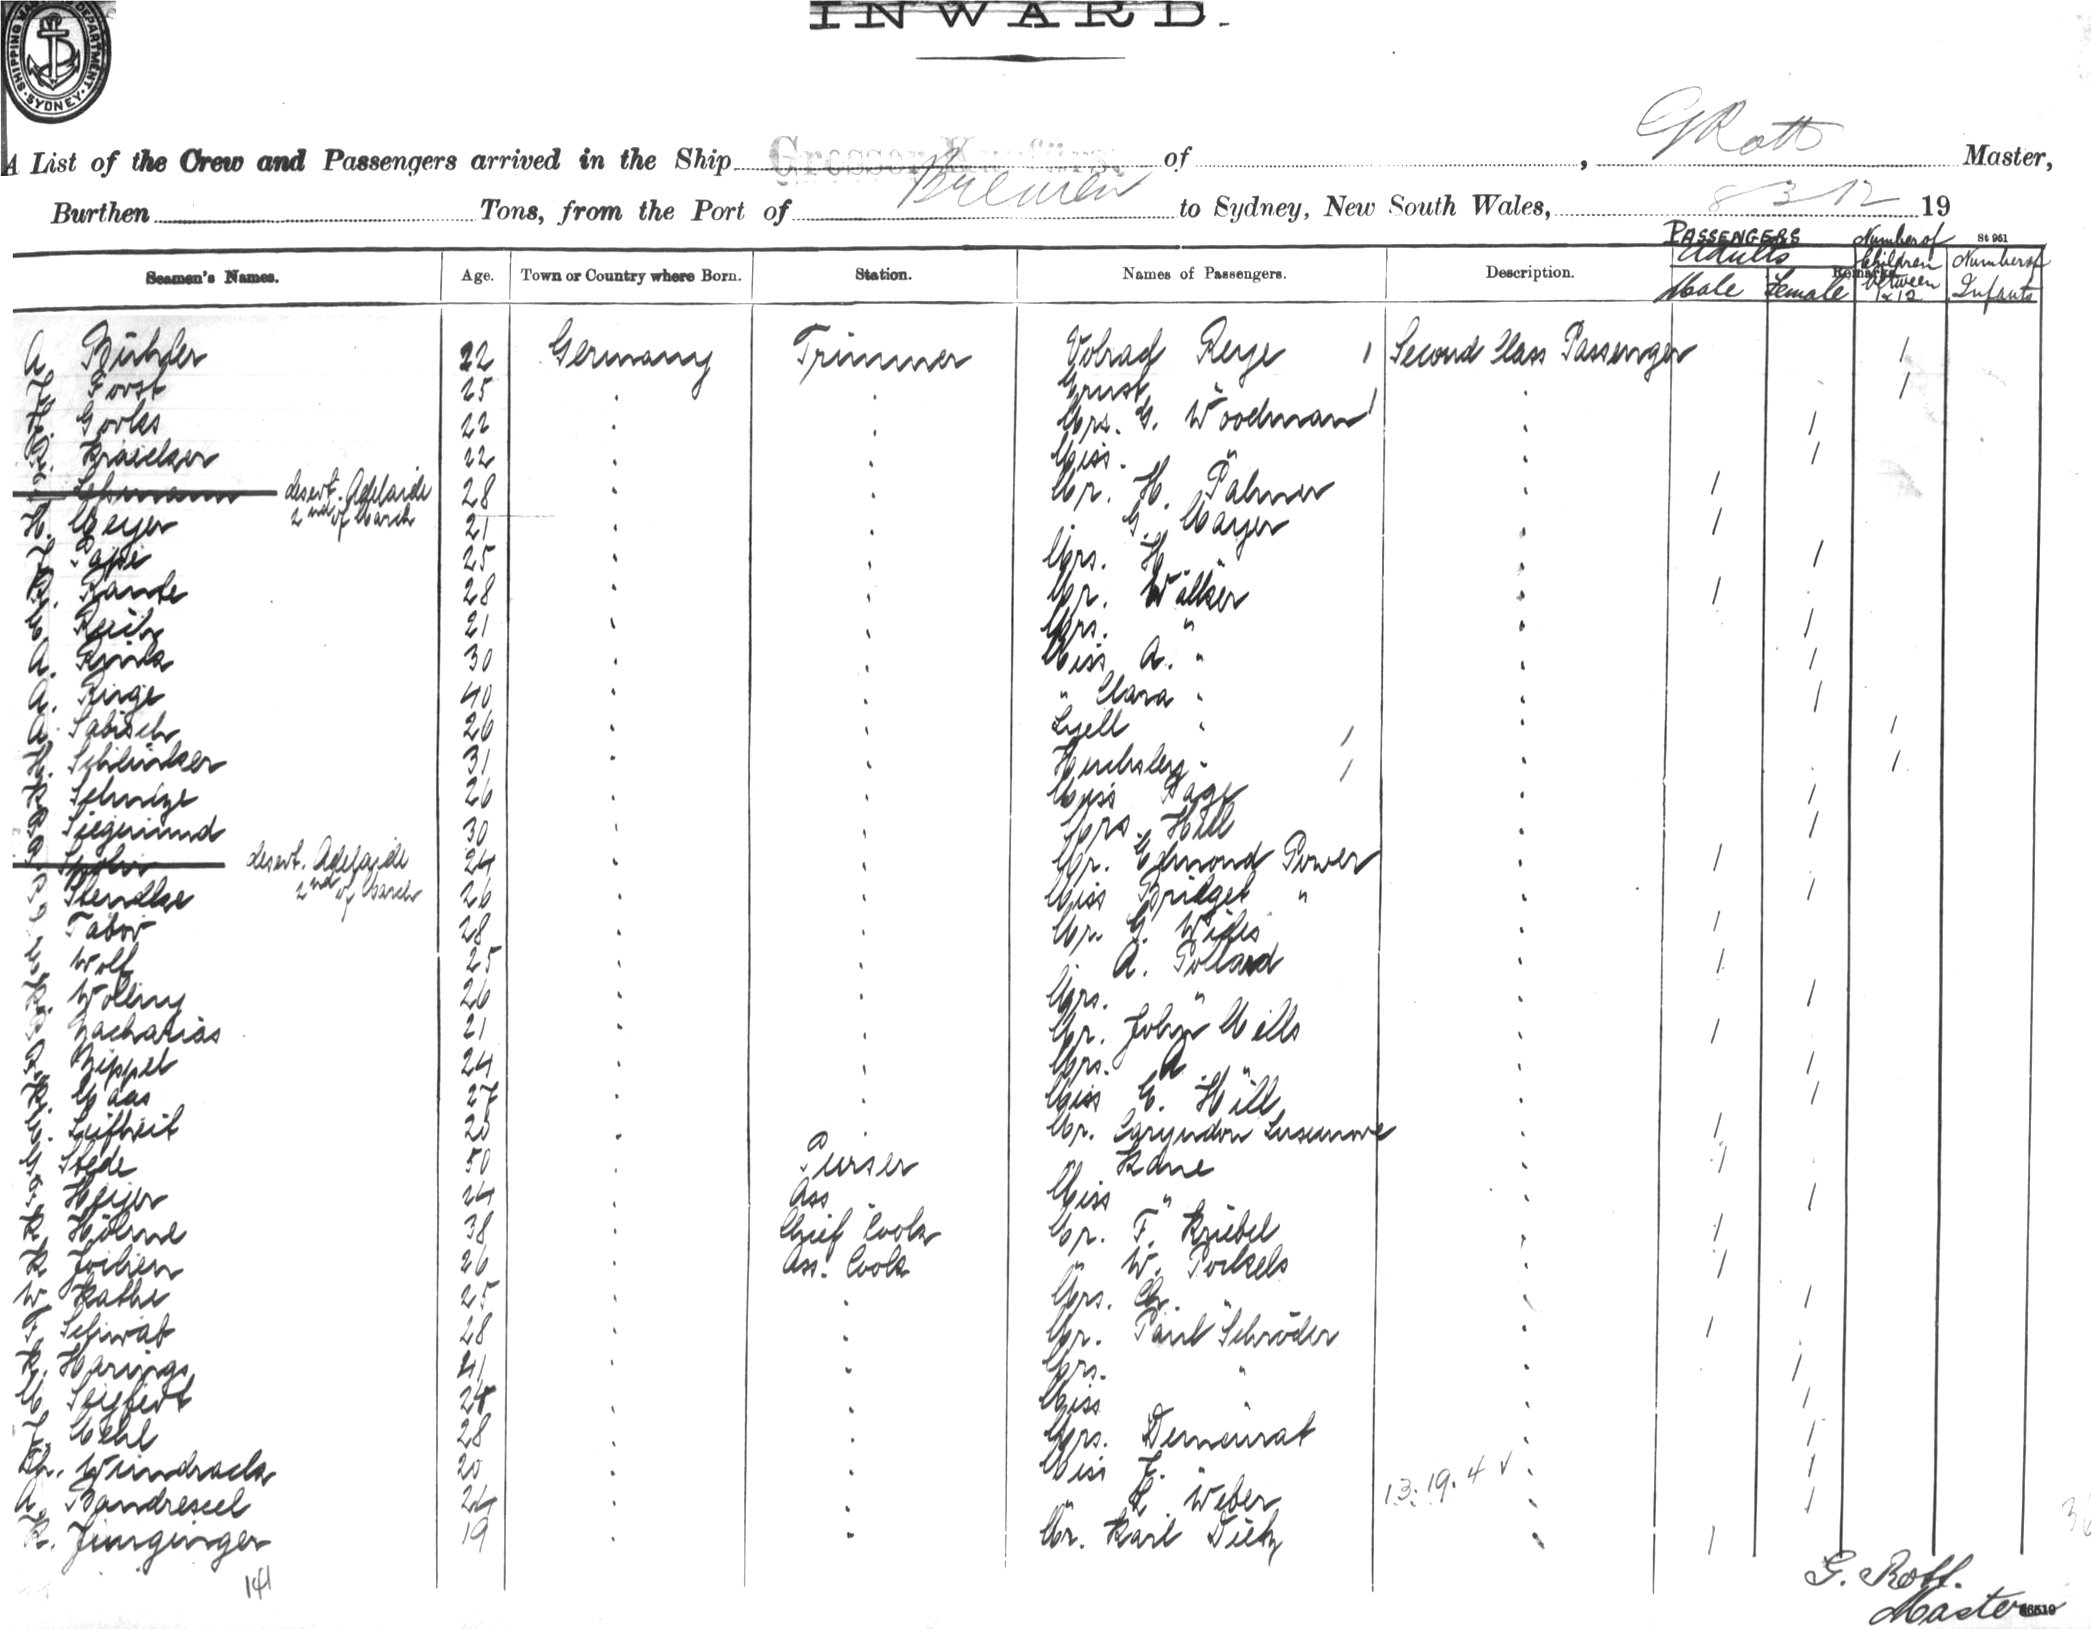 SHIPPING MASTER'S DEPARTMENT SYDNEY
INWARD.
A List of the Crew and Passengers arrived in the Ship Grosser Kurfürst of , G Rott Master,
Burthen Tons, from the Port of Bremen to Sydney, New South Wales, 8 3 12 19
PASSENGERS Number of St 961
Adults Children Number of
Seamen's Names. Age. Town or Country where Born. Station. Names of Passengers. Description. Remarks
Male Female between 1 & 12 Infants
A Bühler 22 Germany Trimmer Volrad Reye 1 Second Class Passenger 1
Forst 25 Ernst " 1
22 Mrs. G. Woodman 1 1
22 Miss. " 1
Lehmann desert. Adelaide 2nd of March 28 Mr. H. Palmer 1
H. Meyer 21 " G. Mayer 1
25 Mrs. H. " 1
Rante 28 Mr. Walker 1
21 Mrs. " 1
A. 30 Miss A. " 1
A. Ringe 40 " Clara " 1
A. Sabisch 26 Lyell " 1
31 " 1
Schulze 26 Miss Page 1
Siegmund 30 Mrs. Hill 1
Spohr desert. Adelaide 2nd of March 24 Mr. Edmond Power 1
Stendke 26 Miss Bridget " 1
Tabor 28 Mr. G. Wills 1
Wolf 25 " A. Pollard 1
Wollny 26 Mrs. " 1
Zacharias 21 Mr. John Mills 1
Zippel 24 Mrs. A " 1
K. Maas 27 Miss E. Hill 1
Leifheit 25 Mr. 1
Stede 50 Purser " Kane 1
Heijer 24 Ass " Miss " 1
K Höhne 38 Chief Cook Mr. F. Kriebel 1
K 26 Ass. Cook " W. Pockels 1
W. Kathe 25 Mrs. Ch. " 1
F. Schwab 28 Mr. Paul Schröder 1
K. Harings 41 Mrs. " 1
M Seiffert 24 Miss " 1
Mehl 28 Mrs. Demeurat 1
Ch. Windrack 20 Miss E. " 1
A. Bandreseel 24 " Weber 13.19.4 √ 1
K. Junginger 19 Mr. Karl Dietz 1
141
G. Rott.
Master
86510